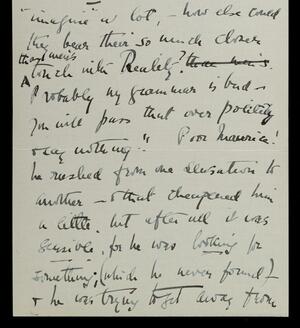 imagine a lot, – how else could
they bear their so much closer
than men's
touch with Reality? than men's.
Probably my grammar is bad &
you will pass that over politely
& say nothing!! Poor Maurice!
he rushed from one sensation to
another – & that changed him
a little. but after all it was
sensible, for he was looking for
something; (which he never found)–
& he was trying to get away from